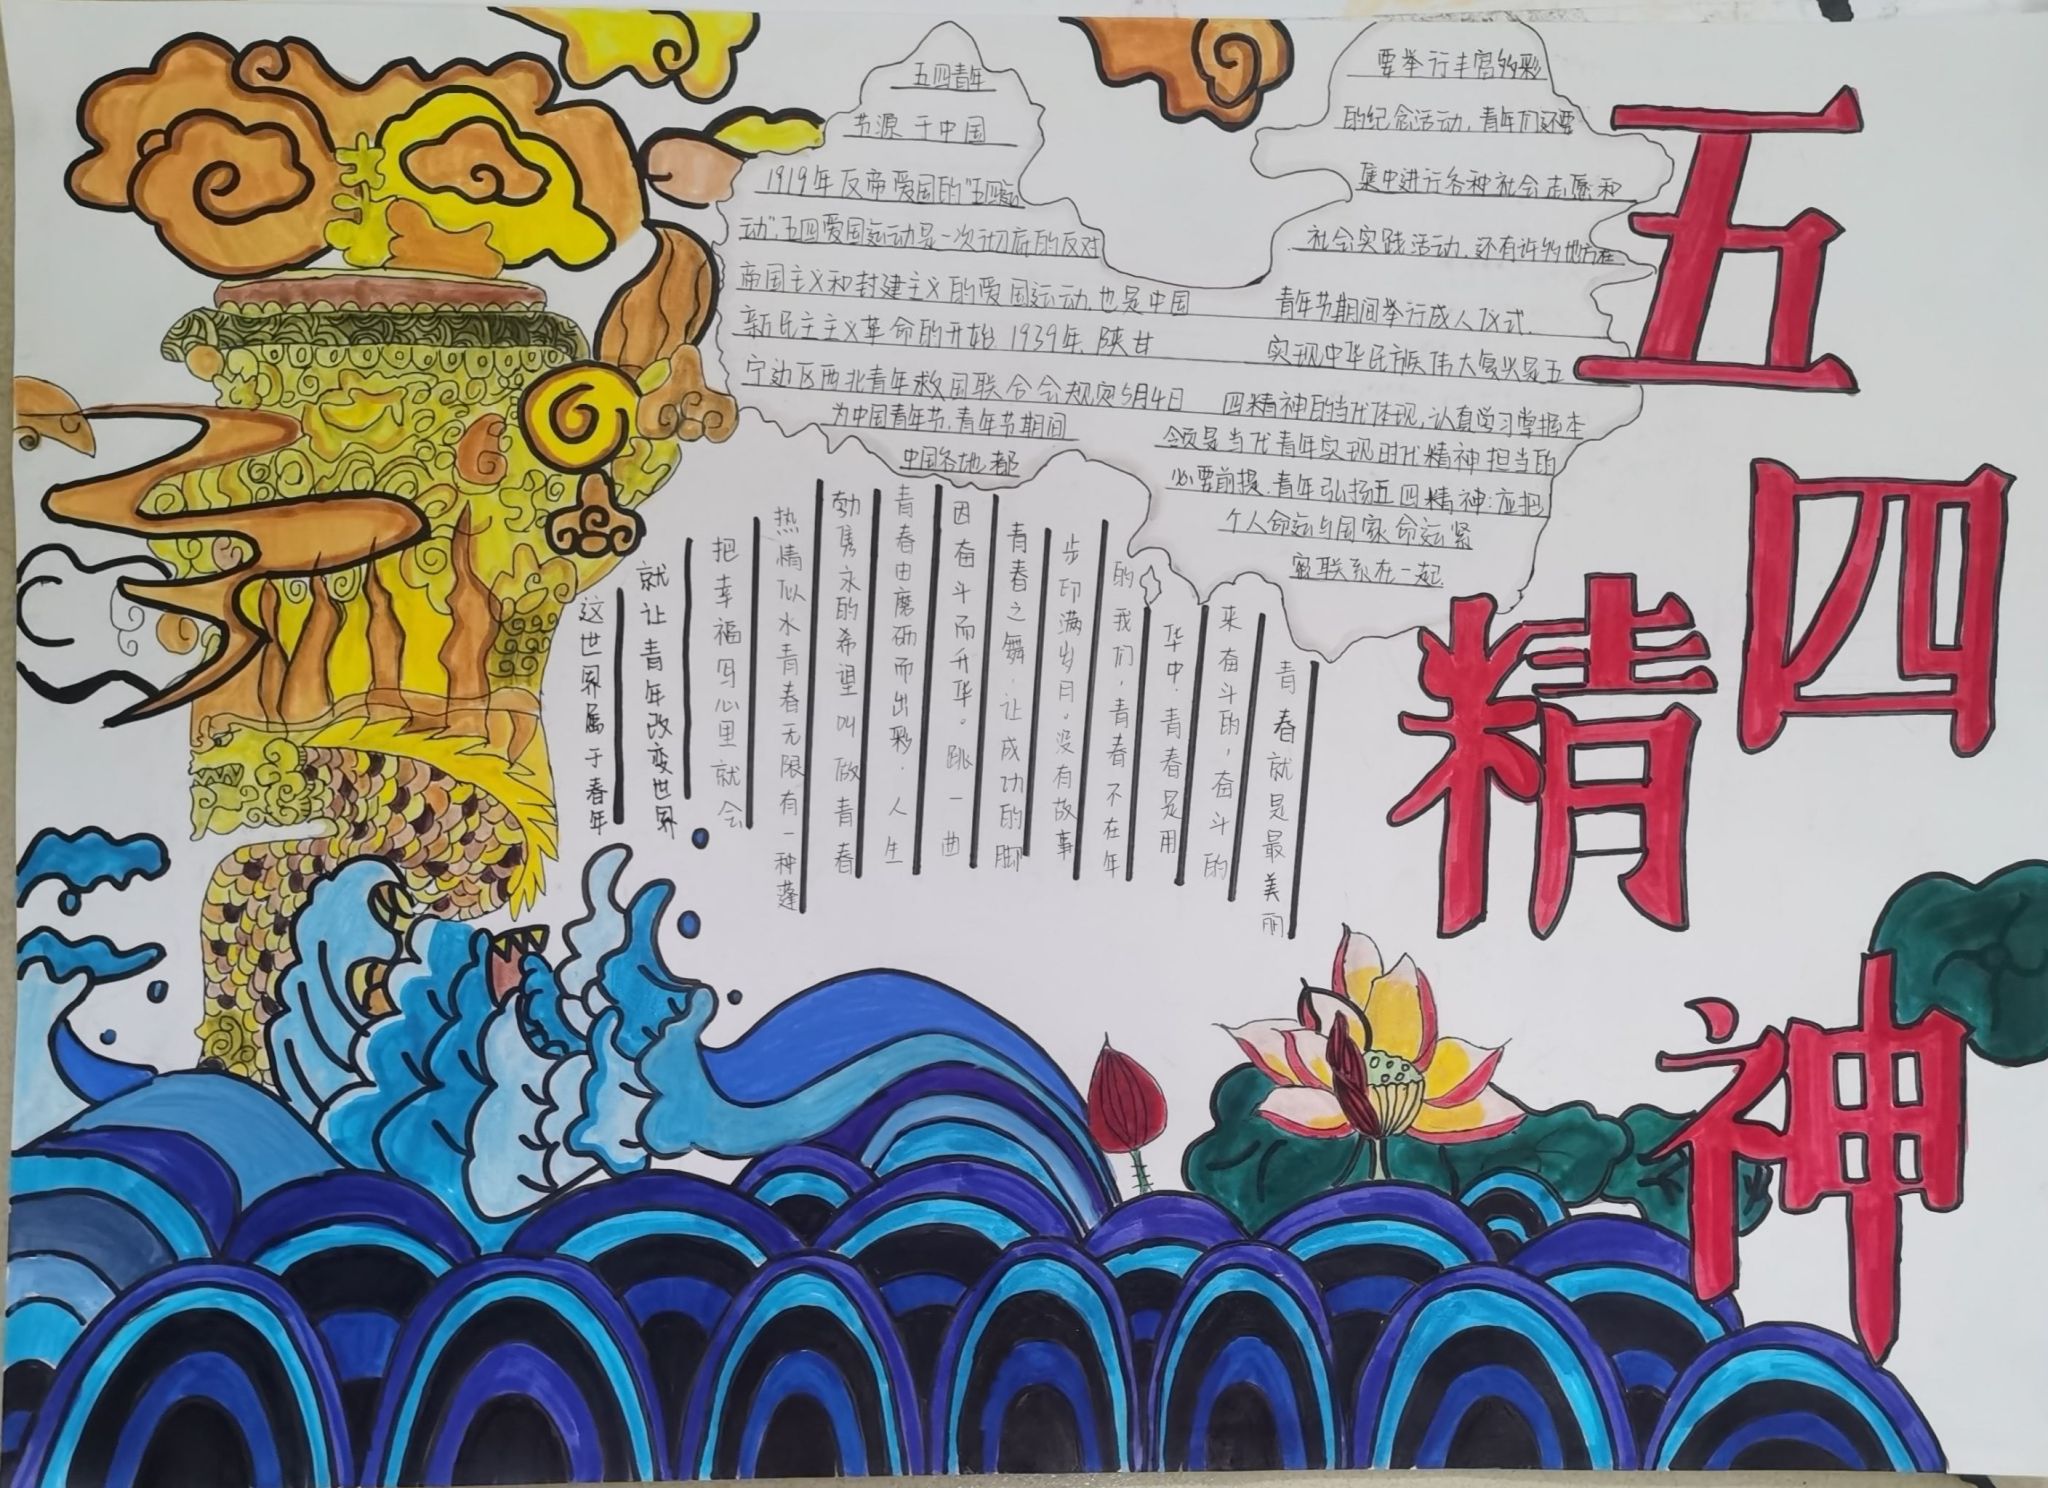 五
四
精
神
五四青年
节源于中国
1919年反帝爱国的"五四运
动",五四爱国运动是一次彻底的反对
帝国主义和封建主义的爱国运动,也是中国
新民主主义革命的开始.1939年,陕甘
宁边区西北青年救国联合会规定5月4日
为中国青年节,青年节期间
中国各地都
要举行丰富多彩
的纪念活动,青年们还要
集中进行各种社会志愿和
社会实践活动,还有许多地方在
青年节期间举行成人仪式.
实现中华民族伟大复兴是五
四精神的当代体现,认真学习掌握本
领是当代青年实现时代精神担当的
必要前提.青年弘扬五四精神:应把
个人命运与国家命运紧
密联系在一起.
青春就是最美丽
来奋斗的，奋斗的
华中.青春是用
的我们，青春不在年
步印满岁月。没有故事
青春之舞.让成功的脚
因奋斗而升华。跳一曲
青春由磨砺而出彩.人生
勃隽永的希望叫做青春
热情似水青春无限有一种蓬
把幸福写心里就会
就让青年改变世界
这世界属于春年